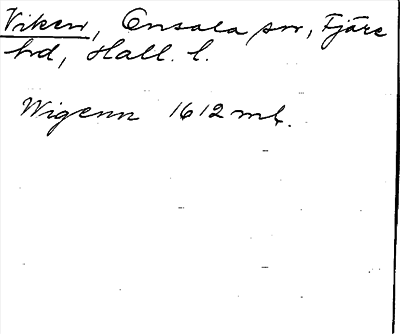 Viken, Onsala sn, Fjäre
hd, Hall. l.
Wigenn 1612 mt.